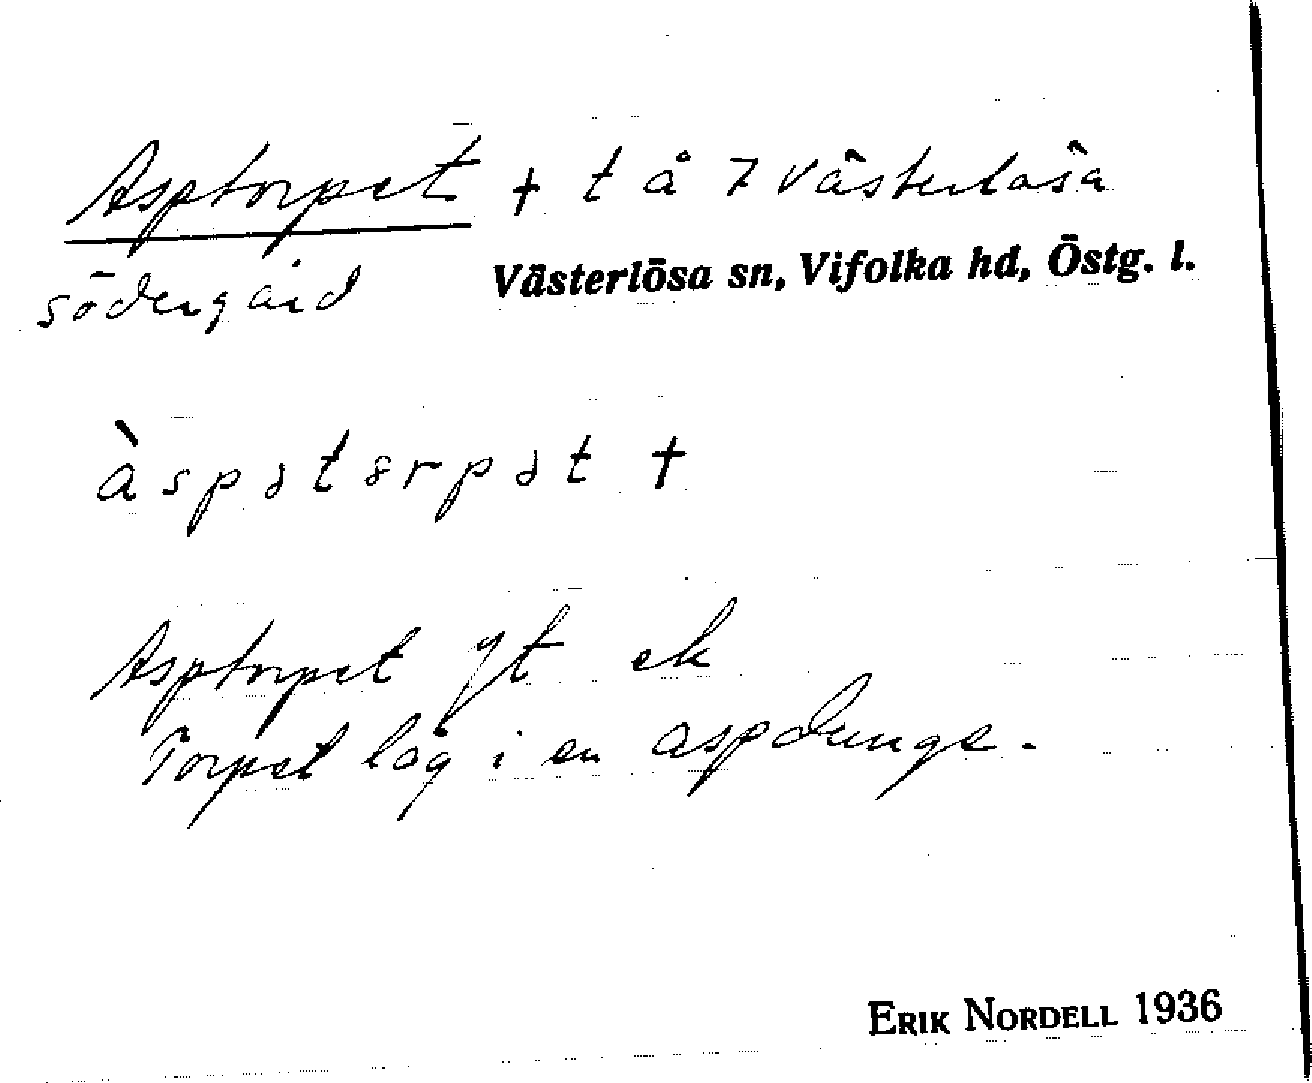 Asptorpet + t å 7 Västerlösa
södergård
Västerlösa sn, Vifolka hd, Östg. l.
àspətɜrpət †
Asptorpet gt ek
Torpet låg i en aspdunge.
ERIK NORDELL 1936